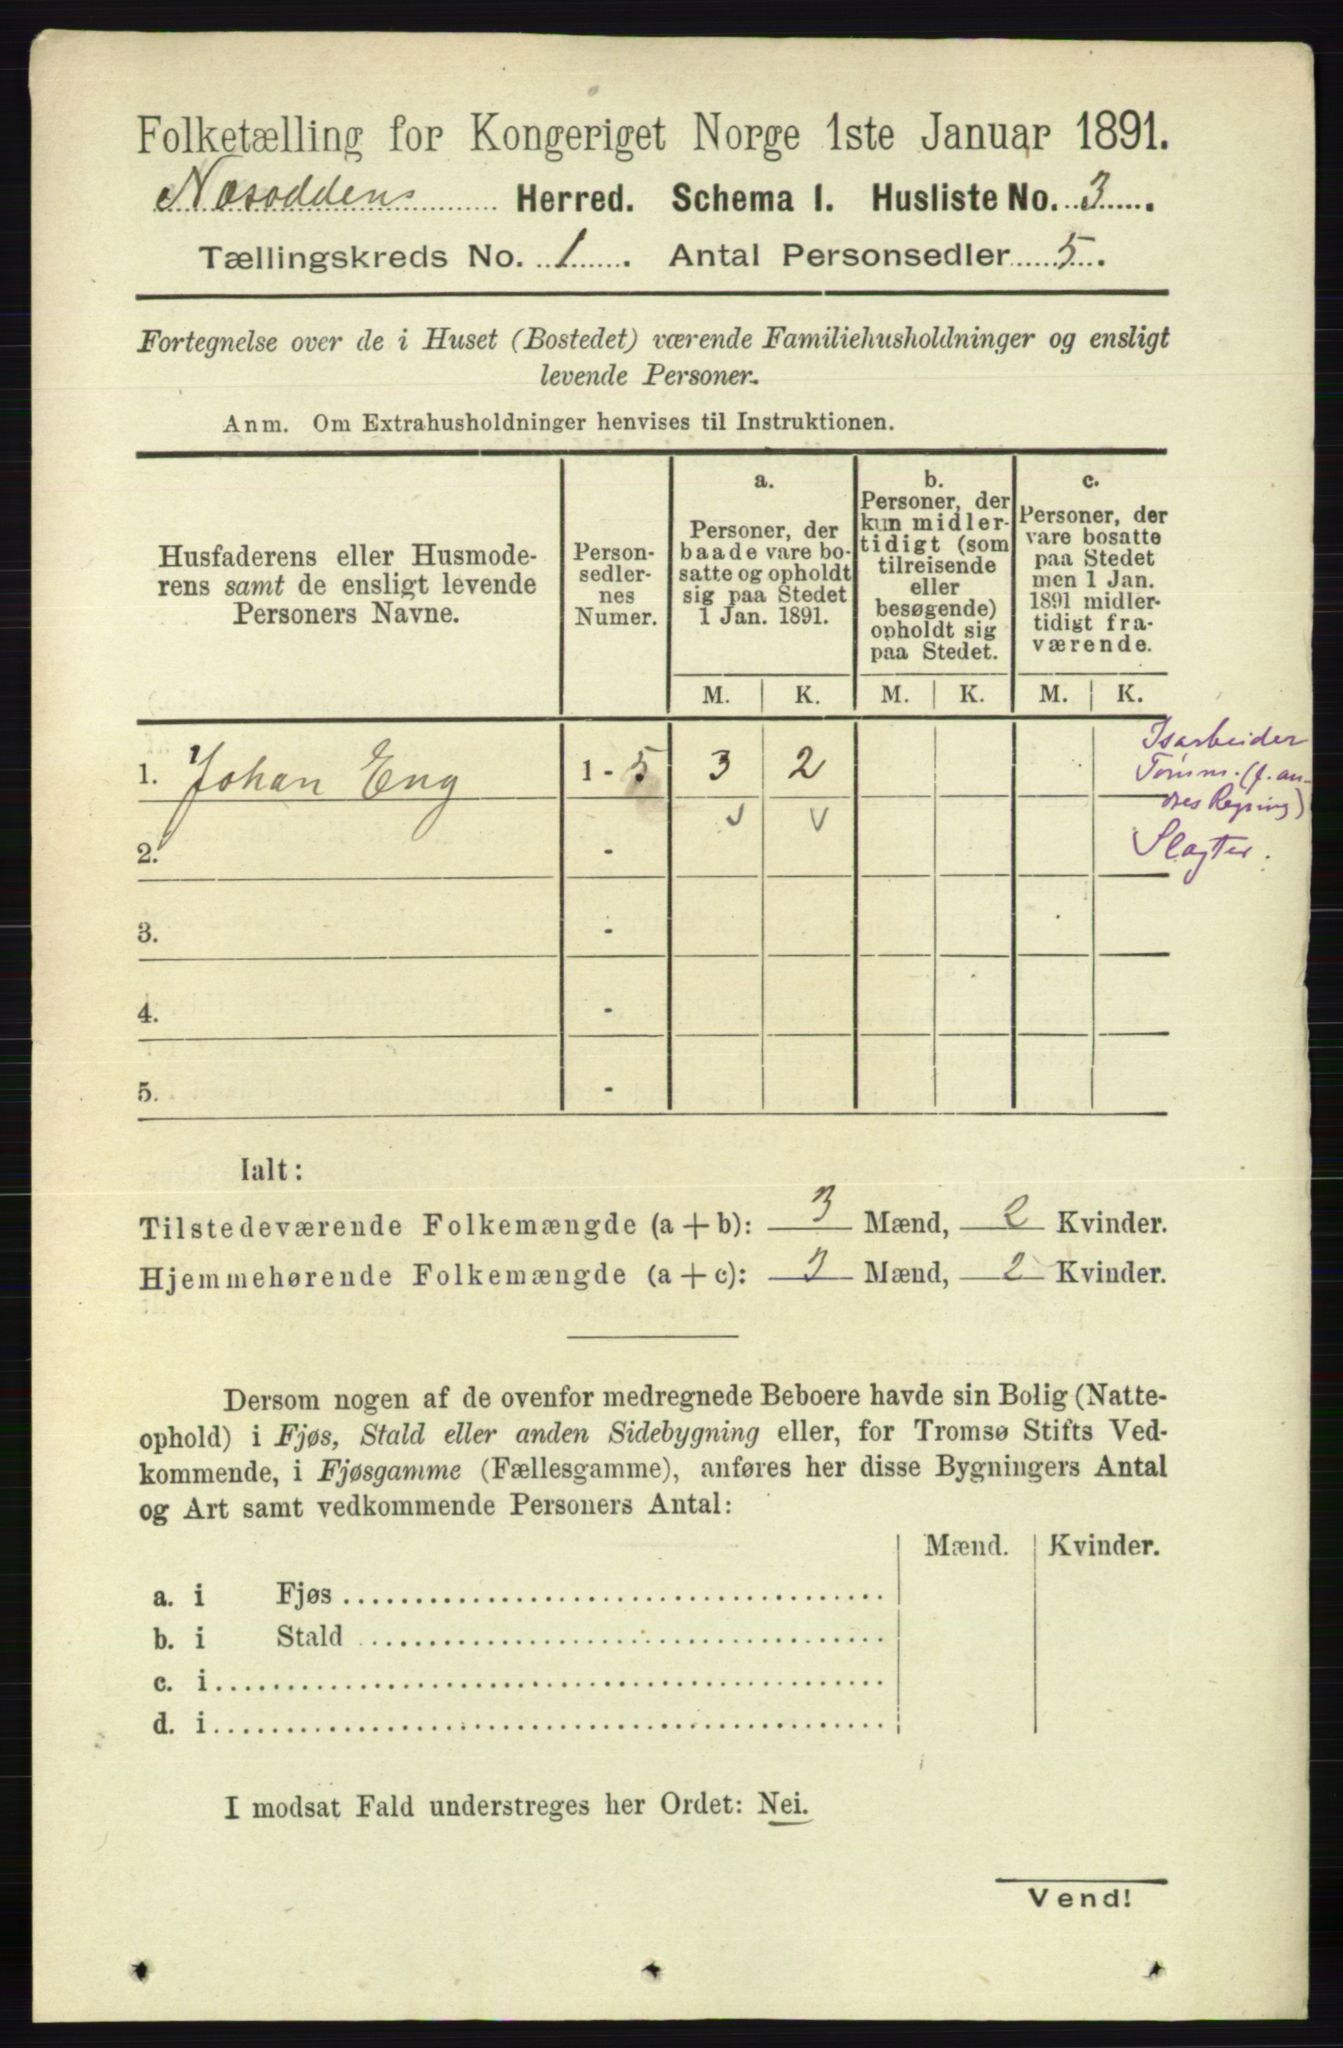 Folketælling for Kongeriget Norge 1ste Januar 1891.
Næsoddens Herred. Schema 1. Husliste No. 3.
Tællingskreds No. 1. Antal Personsedler 5.
Fortegnelse over de i Huset (Bostedet) værende Familiehusholdninger og ensligt
levende Personer.
Anm. Om Extrahusholdninger henvises til Instruktionen.
Husfaderens eller Husmode-
rens samt de ensligt levende
Personers Navne.
Person-
sedler-
nes
Numer.
a.
Personer, der
baade vare bo-
satte og opholdt
sig paa Stedet
1 Jan. 1891.
b.
Personer, der
kun midler-
tidigt (som
tilreisende
eller
besøgende)
opholdt sig
paa Stedet.
c.
Personer, der
vare bosatte
paa Stedet
men 1 Jan.
1891 midler-
tidigt fra-
værende.
M. K. M. K. M. K.
1. Johan Eng 1 - 5 3 2
Isarbeider
Tømm. (f. an-
dres Regning)
Slagter.
2. -
3. -
4. -
5. -
Ialt:
Tilstedeværende Folkemængde (a + b): 3 Mænd, 2 Kvinder.
Hjemmehørende Folkemængde (a + c): 3 Mænd, 2 Kvinder.
Dersom nogen af de ovenfor medregnede Beboere havde sin Bolig (Natte-
ophold) i Fjøs, Stald eller anden Sidebygning eller, for Tromsø Stifts Ved-
kommende, i Fjøsgamme (Fællesgamme), anføres her disse Bygningers Antal
og Art samt vedkommende Personers Antal:
Mænd. Kvinder.
a. i Fjøs
b. i Stald
c. i
d. i
I modsat Fald understreges her Ordet: Nei.
Vend!